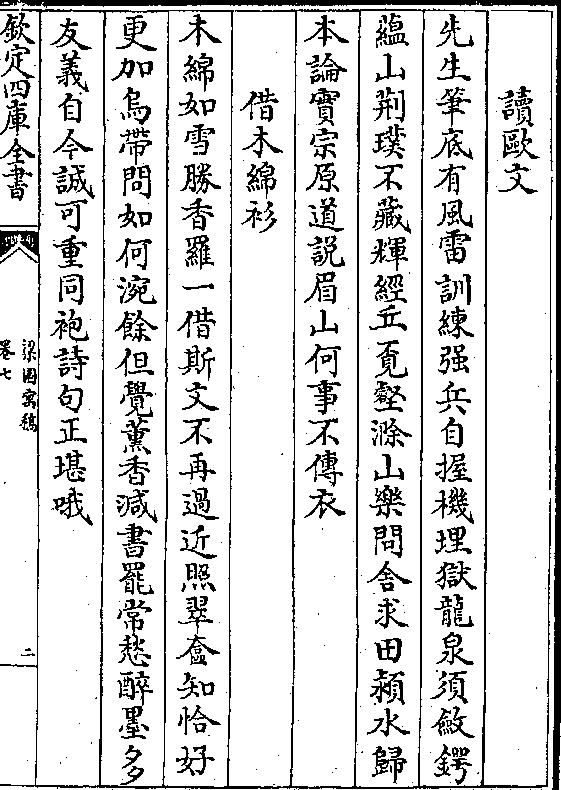 讀歐文
先生筆底有風雷訓練强兵自握機埋獄龍泉須斂鍔
藴山荆璞不藏輝經丘覔壑滁山樂問舍求田潁水歸
本論實宗原道説眉山何事不傳衣
借木綿衫
木綿如雪勝香羅一借斯文不再過近照翠奩知恰好
更加烏帶問如何涴餘但覺薰香减書罷常愁醉墨多
友義自今誠可重同袍詩句正堪哦
欽定四庫全書
梁園寓稿
卷七
二